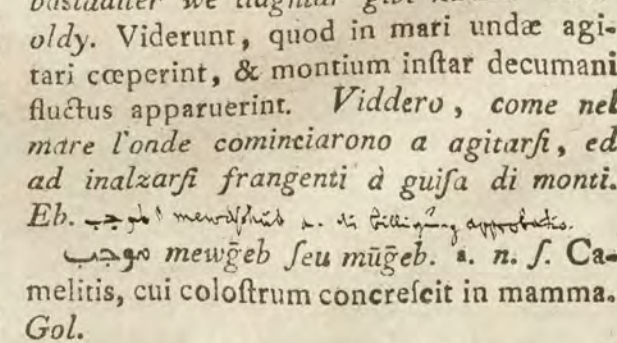 oldy. Viderunt, quod in mari undæ agi-
tari cœperint, & montium inſtar decumani
fluctus apparuerint. Viddero, come nel
mare l'onde cominciarono a agitarſi, ed
ad inalzarſi frangenti à guiſa di monti.
Eb. a. Billigung approbatio.
موجب mewḡeb ſeu mūḡeb. a. n. ſ. Ca-
melitis, cui coloſtrum concreſcit in mamma.
Gol.